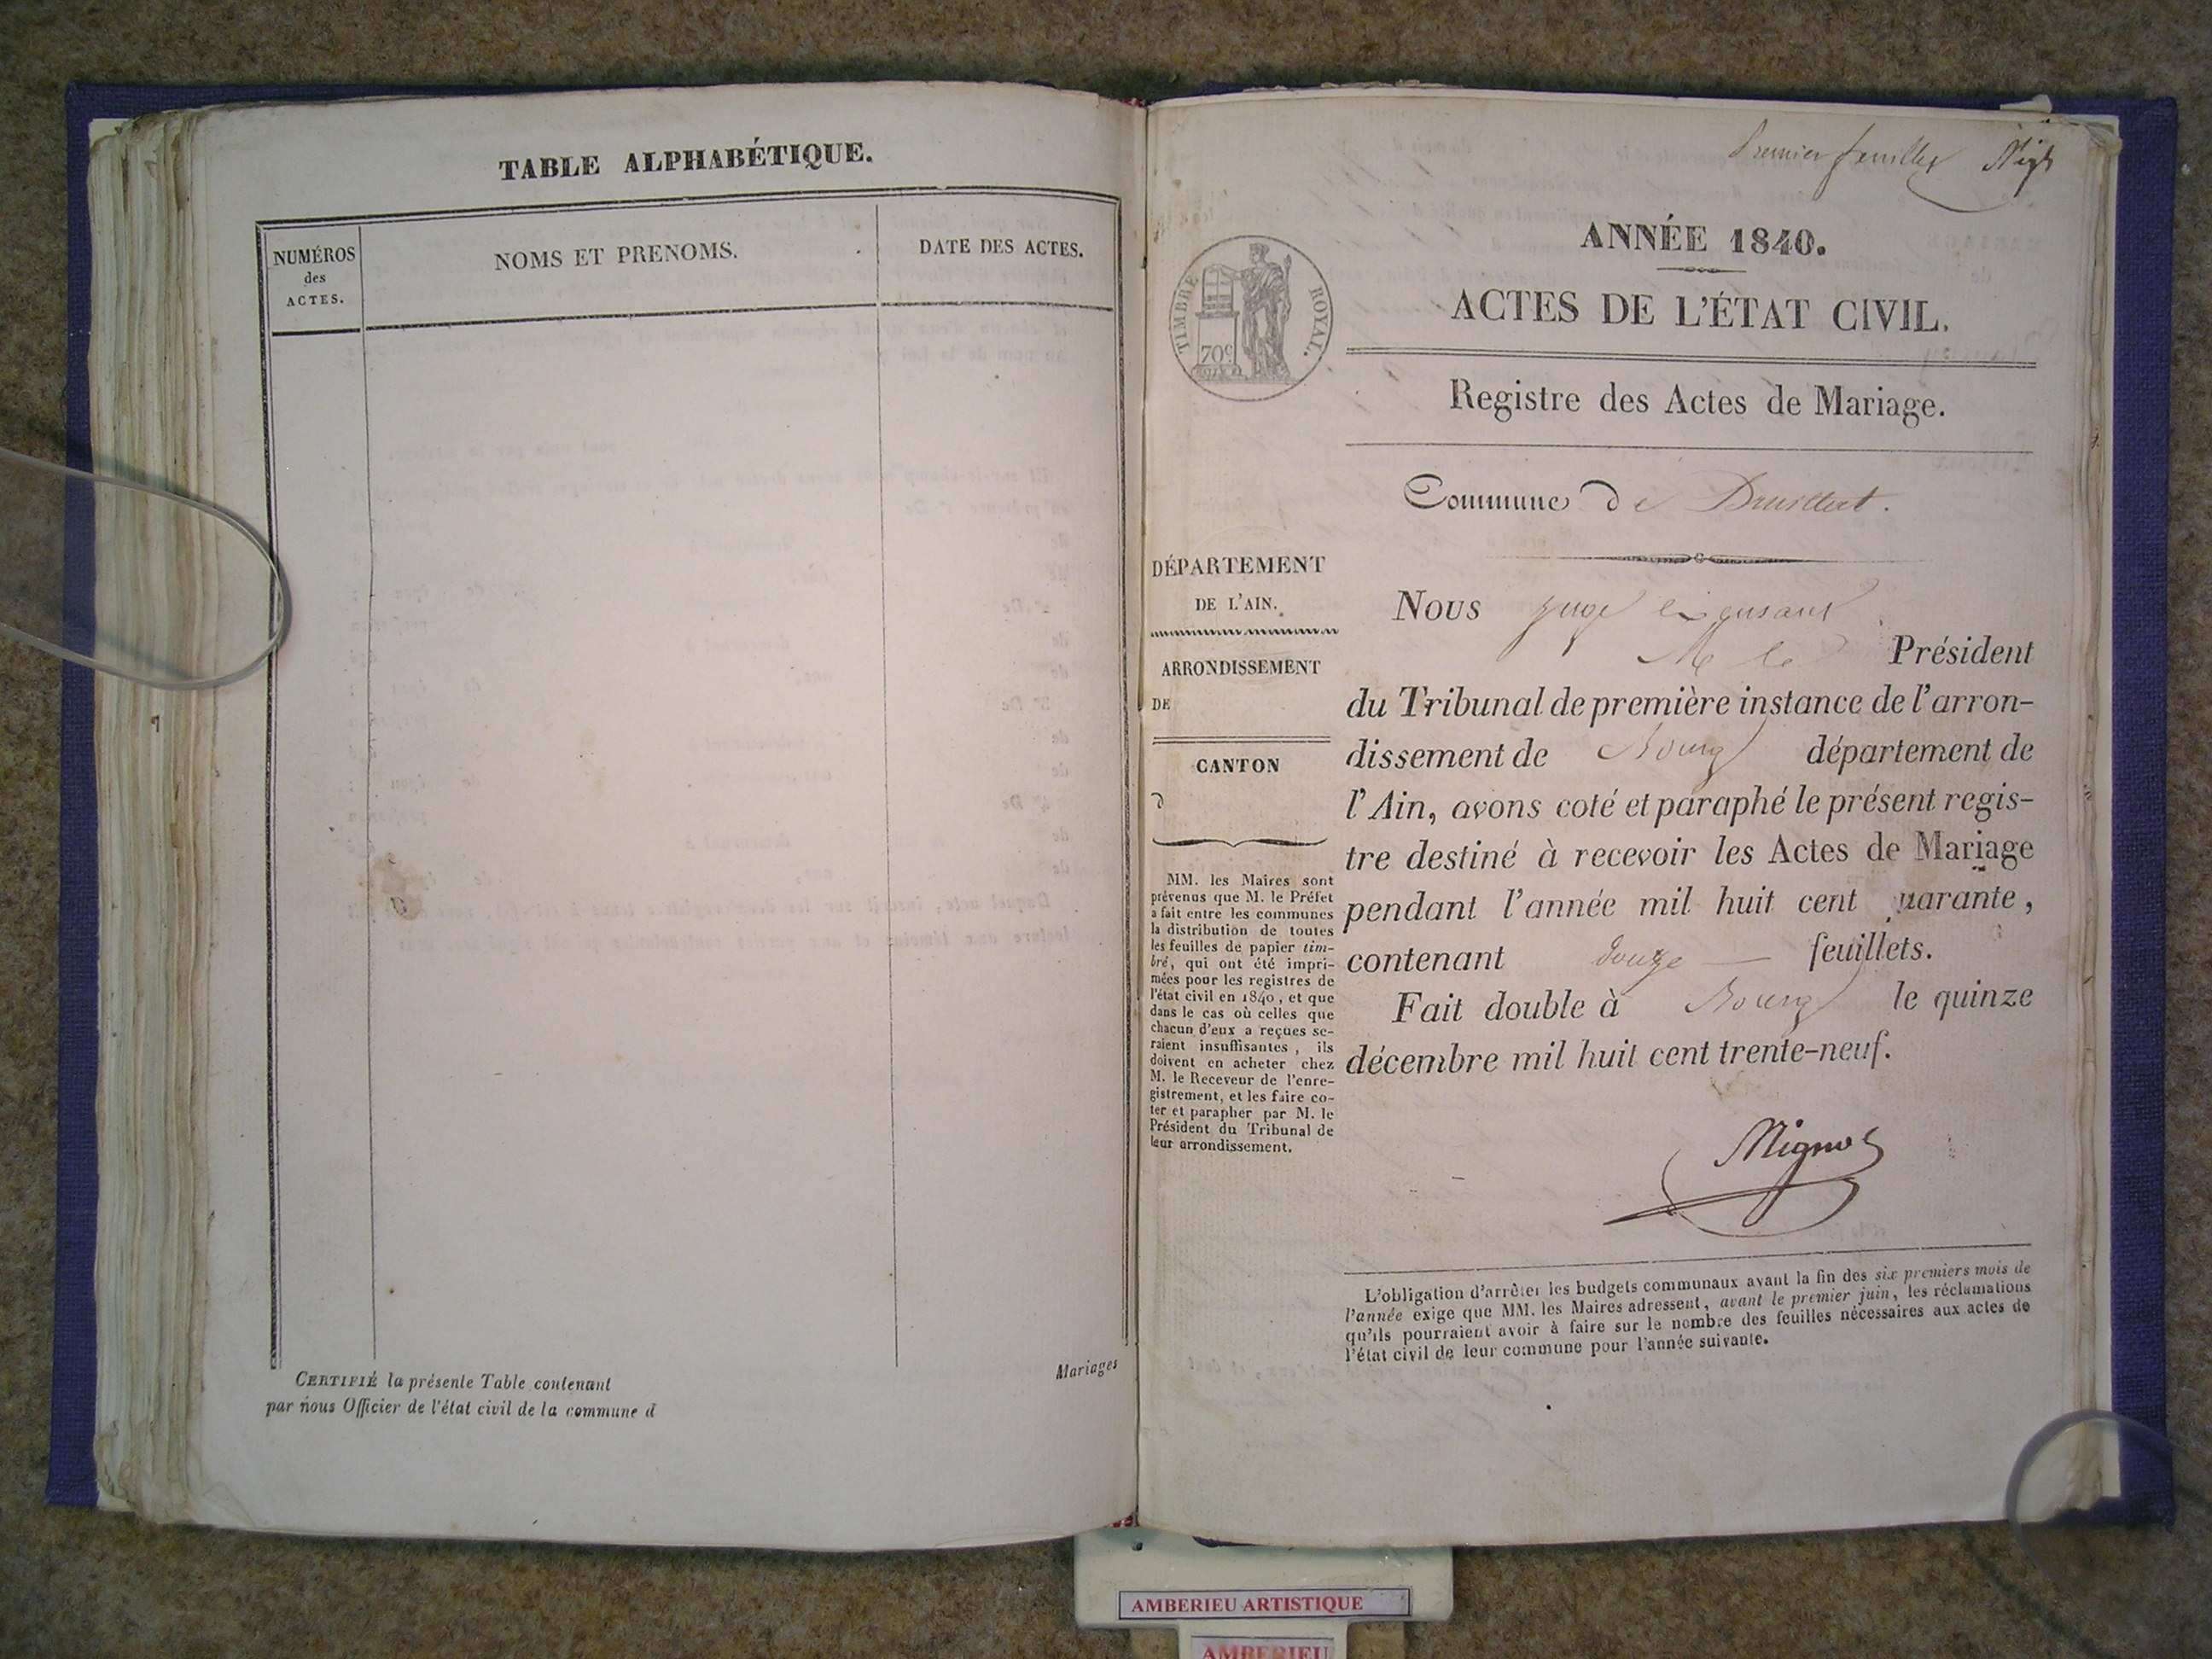 TABLE ALPHABÉTIQUE.
NUMÉROS
des
ACTES.
NOMS ET PRENOMS.
DATE DES ACTES.
CERTIFIÉ la présente Table contenant
par nous Officier de l'état civil de la commune d
Mariages
Premier feuillet
ANNÉE 1840.
TIMBRE ROYAL.
70c
ACTES DE L'ÉTAT CIVIL.
Registre des Actes de Mariage.
Commune de Druillat.
DÉPARTEMENT
DE L'AIN.
ARRONDISSEMENT
DE
CANTON
d
MM. les Maires sont
prévenus que M. le Préfet
a fait entre les communes
la distribution de toutes
les feuilles de papier tim-
bré, qui ont été impri-
mées pour les registres de
l'état civil en 1840, et que
dans le cas où celles que
chacun d'eux a reçues se-
raient insuffisantes, ils
doivent en acheter chez
M. le Receveur de l'enre-
gistrement, et les faire co-
ter et parapher par M. le
Président du Tribunal de
leur arrondissement.
Nous juge
M le Président
du Tribunal de première instance de l'arron-
dissement de Bourg département de
l'Ain, avons coté et paraphé le présent regis-
tre destiné à recevoir les Actes de Mariage
pendant l'année mil huit cent uarante,
contenant douze feuillets.
Fait double à Bourg le quinze
décembre mil huit cent trente-neuf.
Mignot
L'obligation d'arrêter les budgets communaux avant la fin des six premiers mois de
l'année exige que MM. les Maires adressent, avant le premier juin, les réclamations
qu'ils pourraient avoir à faire sur le nombre des feuilles nécessaires aux actes de
l'état civil de leur commune pour l'année suivante.
AMBERIEU ARTISTIQUE
AMBERIEU